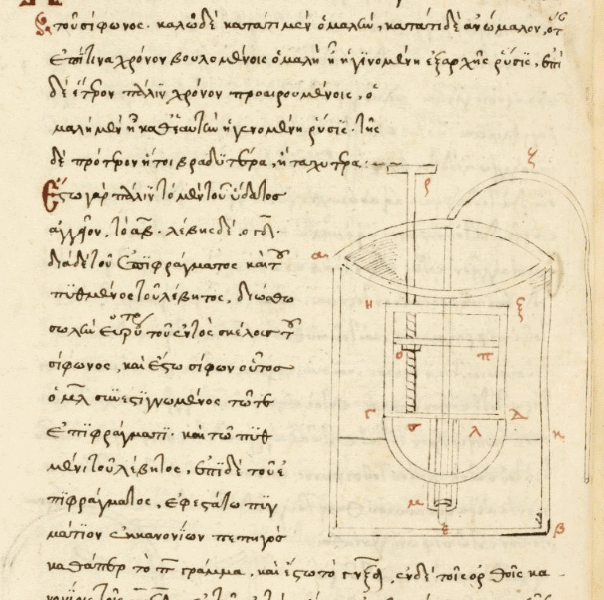 τοῦ σίφωνος· καλῶ δὲ κατά τι μὲν ὁμαλήν, κατά τι δὲ ἀνώμαλον, ὅτι
ἐπί τινα χρόνον βουλομένοις ὁμαλὴ ἦν ἡ γινομένη ἐξαρχῆς ῥύσις, ἐπὶ
δὲ ἕτερον πάλιν χρόνον προαιρουμένοις, ὁ
μαλὴ μὲν ἦν καθ' ἑαυτὴν ἡ γενομένη ῥύσις· τῆς
δὲ πρότερον ἤτοι βραδυτέρα, ἢ ταχυτέρα:
Ἔστω γὰρ πάλιν τὸ μὲν τοῦ ὕδατος
ἀγγεῖον, τὸ αβ· λέβης δὲ, ὁ γδ·
διὰ δὲ τοῦ ἐπιφράγματος καὶ τοῦ
πυθμένος τοῦ λέβητος, διώσθω
σωλὴν εὐρύτερος τοῦ ἐντὸς σκέλους τοῦ
σίφωνος, καὶ ἔστω σίφων οὗτος
ὁ μλ συνεστεγνωμένος τῶ τε
ἐπιφράγματι· καὶ τῶ πυθ
μένι τοῦ λέβητος, ἐπὶ δὲ τοῦ ἐ
πιφράγματος, ἐφεστάτω πηγ
μάτιον ἐκ κανονίων πεπηγὸς
καθάπερ τὸ π γράμμα, καὶ ἔστω τὸ γηξδ, ἐν δὲ τοῖς ὀρθοῖς κα
ρ
ζ
α
η
ξ
ο
π
γ
δ
σ
λ
κ
μ
ε
β